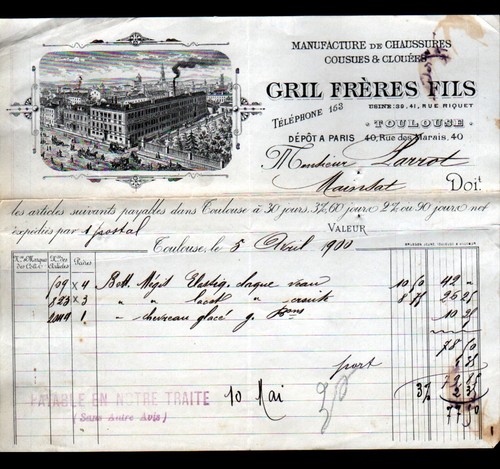 MANUFACTURE DE CHAUSSURES
COUSUES & CLOUÉES
GRIL FRÈRES FILS
USINE: 39, 41, RUE RIQUET
TÉLÉPHONE 153
TOULOUSE
DÉPÔT A PARIS 40, Rue des Marais, 40
Monsieur Parrot
Mainsat Doit
les articles suivants payables dans Toulouse à 30 jours, 3% 60 jours 2% ou 90 jours net
expédiés par 1 postal
VALEUR
Toulouse, le 5 Avril 1900
Nos des Articles Paires
609 x 4 Bott. Mégis Elastiq. claque veau 10 50 42 "
823 x 3 " " lacet " 8 75 26 25
1 " chevreau glacé g. Bons 10 25
78 50
port
3%
77 10
PAYABLE EN NOTRE TRAITE 10 Mai
(Sans Autre Avis)